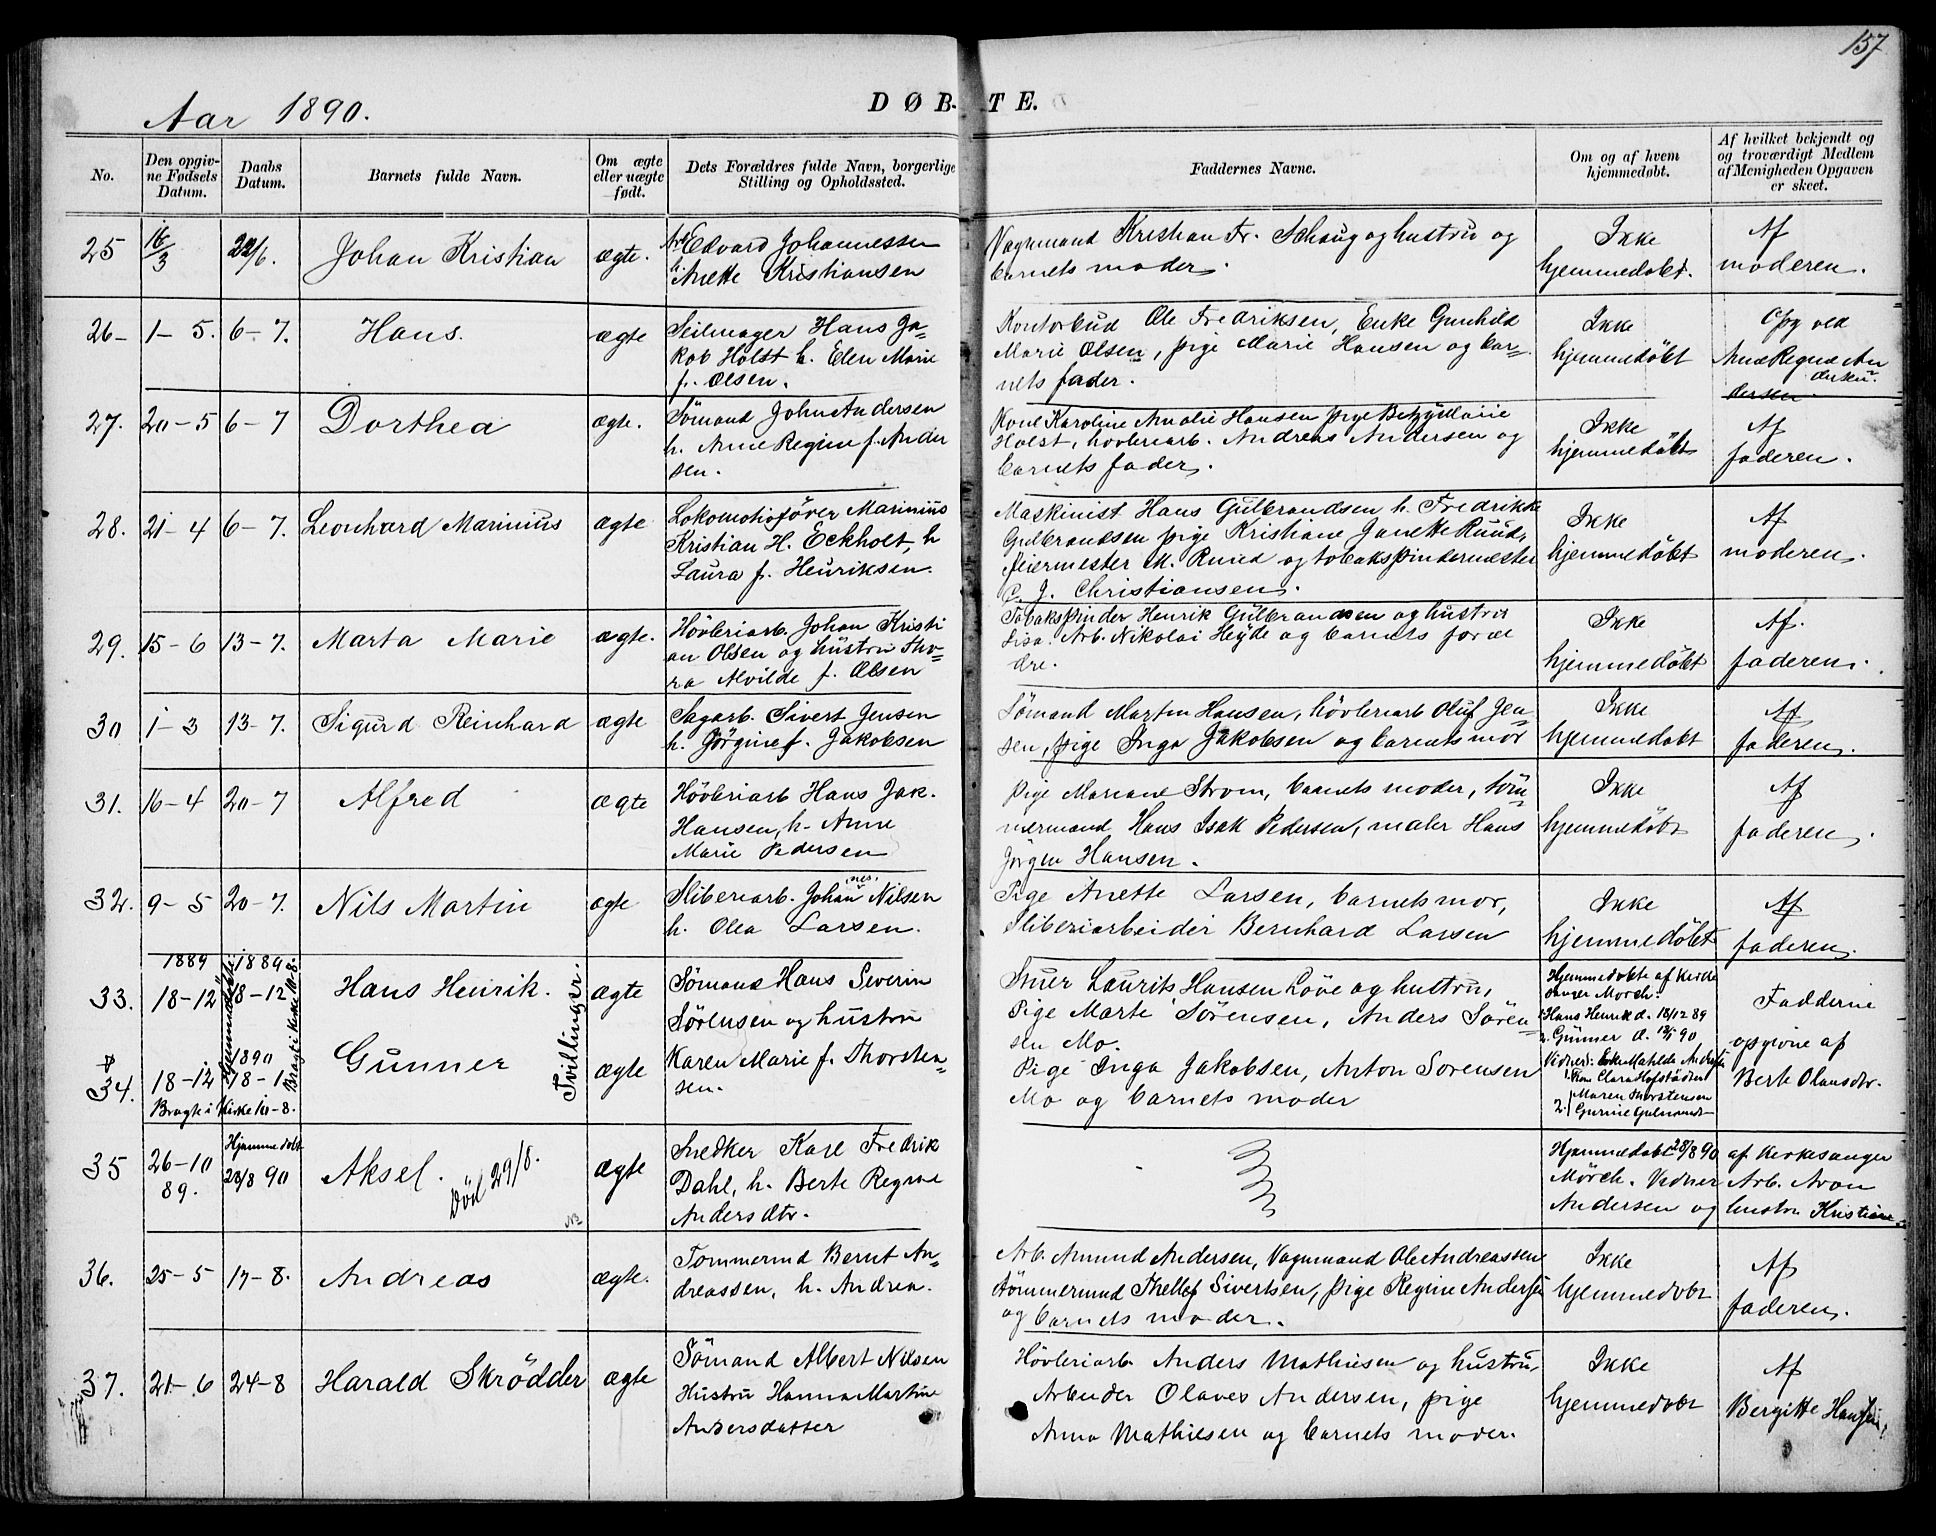 157
Aar 1890.
DØB-TE.
No.
Den opgiv-
ne Fødsels
Datum.
Daabs
Datum.
Barnets fulde Navn.
Om ægte
eller uægte
født.
Dets Forældres fulde Navn, borgerlige
Stilling og Opholdssted.
Faddernes Navne.
Om og af hvem
hjemmedøbt.
Af hvilket bekjendt og
og troværdigt Medlem
af Menigheden Opgaven
er skeet.
25 16/3 22/6. Johan Kristian ægte.
Arb Edvard Johannessen
h. Anette Kristiansen
Vognmand Kristian Fr. Schaug og hustru og
barnets moder.
Ikke
hjemmedøbt.
Af
moderen.
26- 1-5. 6-7. Hans. ægte
Seilmager Hans Ja-
kob Holst h. Elen Marie
f. Olsen.
Kontorbud Ole Fredriksen, Enke Gunhild
Marie Olsen, pige Marie Hansen og bar-
nets fader.
Ikke
hjemmedøbt
Opg ved
Ane Regine An
dersen.
27. 20-5 6-7 Dorthea ægte.
Sömand John Andersen
h. Anne Regine f. Ander
sen.
Kone Karoline Amalie Hansen pige Betzy Marie
Holst, hövleriarb. Andreas Andersen og
barnets fader.
Ikke
hjemmedøbt
Af
faderen.
28. 21-4 6-7. Leonhard Marinius ægte
Lokomotivförer Marinius
Kristian H. Eckholt, h
Laura f. Henriksen.
Maskinist Hans Gulbrandsen h. Fredrikke
Gulbrandsen pige Kristiane Janette Ruud,
feiermester M. Ruud og tobakspindermester
P. J. Christiansen.
Ikke
hjemmedøbt
Af
moderen.
29. 15-6 13-7. Marta Marie ægte.
Hövleriarb. Johan Kristi
an Olsen og hustru Tho-
ra Alvilde f. Olsen
Tobakspinder Henrik Gulbrandsen og hustru
Lisa. Arb. Nikolai Heyde og barnets foræl
dre.
Ikke
hjemmedøbt
Af.
faderen.
30 1-3 13-7. Sigurd Reinhard ægte
Sagarb. Sivert Jensen
h. Jörgine f. Jakobsen
Sömand Martin Hansen, hövleriarb Oluf Jen-
sen, pige Inga Jakobsen og barnets mor
Ikke
hjemmedøbt
Af
faderen.
31. 16-4 20-7 Alfred ægte
Hövleriarb Hans Jak.
Hansen, h. Anne
Marie Pedersen
Pige Mariane Strøm, barnets moder, töm-
mermand Hans Isak Pedersen, maler Hans
Jörgen Hansen.
Ikke
hjemmedøbt
Af
faderen.
32. 9-5 20-7. Nils Martin ægte
Sliberiarb. Johannes Nilsen
h. Olea Larsen.
Pige Anette Larsen, barnets mor,
Sliberiarbeider Bernhard Larsen
Ikke
hjemmedøbt
Af
faderen.
33. 1889 18-12 1889 18-12 Hans Henrik. ægte
Sömand Hans Severin
Sörensen og hustru
Karen Marie f. Thorsten-
sen.
Stuer Laurits Hansen Löve og hustru,
Pige Marte Sörensen, Anders Sören-
sen Mo.
Hjemmedøbte af Kirke
sanger Mörch.
1. Hans Henrik d. 18/12 89
2. Gunner d. 18/1 90
Fadderne
opgivne af
Berte Olausdtr.
& 34. 18-12 1890 18-1 Gunner ægte
Tvillinger.
Hjemmedøbte
Bragt i Kirke 10-8.
Bragte i Kirke 10-8.
Pige Inga Jakobsen, Anton Sörensen
Mo og barnets moder
Vidner: Enke Matilde
Clara Hofstädter
2. Maren Thorstensen
35 26-10 89. Hjemmedøbt 28/8 90 Aksel. Död 29/8. ægte
NB
Snedker Karl Fredrik
Dahl, h. Berte Regine
Andersdtr.
Hjemmedøbt 28/8 90 af Kirkesanger
Mörch. Vidner Arb. Aron
Andersen og hustru Kristiane
36. 25-5 17-8. Andreas ægte.
Tömmermd Bernt An-
dreassen, h. Andrea.
Arb. Amund Andersen, Vognmand Ole Andreassen
tömmermand Thellef Sivertsen, pige Regine Andersen
og barnets moder.
Ikke
hjemmedøbt
Af
faderen.
37. 21-6 24-8 Harald Skrödder ægte
Sömand Albert Nilsen
Hustru Hanna Martine
Andersdatter
Hövleriarb. Anders Mathiesen og hustru,
Arbeider Olaves Andersen, pige
Anna Mathiesen og barnets moder.
Ikke
hjemmedøbt
Af
Bergitte Hansen.